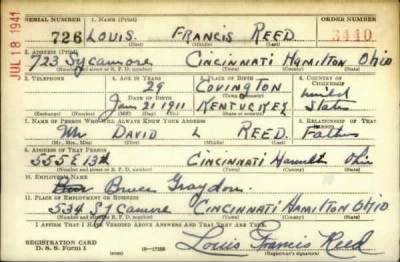 SERIAL NUMBER 1. NAME (Print) ORDER NUMBER
726 LOUIS. FRANCIS REED. 3440
(First) (Middle) (Last)
2. ADDRESS (Print)
723 Sycamore CINCINNATI HAMILTON OHIO
(Number and street or R. F. D. number) (Town) (County) (State)
3. TELEPHONE 4. AGE IN YEARS 5. PLACE OF BIRTH 6. COUNTRY OF CITIZENSHIP
29 COVINGTON
DATE OF BIRTH (Town or county) United
Jan 21 1911 KENTUCKEY States
(Exchange) (Number) (Mo.) (Day) (Yr.) (State or country)
7. NAME OF PERSON WHO WILL ALWAYS KNOW YOUR ADDRESS 8. RELATIONSHIP OF THAT PERSON
Mr DAVID L REED. Father
(Mr., Mrs., Miss) (First) (Middle) (Last)
9. ADDRESS OF THAT PERSON
555 E 13th CINCINNATI Hamilt Ohio
(Number and street or R. F. D. number) (Town) (County) (State)
10. EMPLOYER'S NAME
Bruce Graydon.
11. PLACE OF EMPLOYMENT OR BUSINESS
534 SYCAMORE CINCINNATI HAMILTON OHIO
(Number and street or R. F. D. number) (Town) (County) (State)
I AFFIRM THAT I HAVE VERIFIED ABOVE ANSWERS AND THAT THEY ARE TRUE.
REGISTRATION CARD
D. S. S. Form 1 Louis Francis Reed
(Registrant's signature)
JUL 18 1941